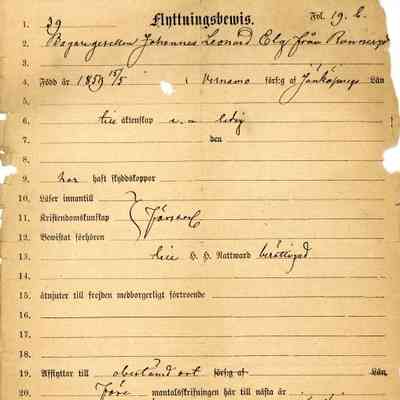 Flyttningsbewis. Fol. 19. b.
1. 39
2. Bagaregesellen Johannes Leonard Elg från Ronneby
3.
4. Född år 1859 15/5 i Wernamo förs:g af Jönköpings Län
5.
6. till äktenskap är ledig
7. den
8.
9. har haft skyddskoppor
10. Läser innantill
11. Kristendomskunskap försvarl
12. Bewistat förhören
13. till H. H. Nattward berättigad
14.
15. åtnjuter till frejden medborgerligt förtroende
16.
17.
18.
19. Afflyttar till obestämd ort förs:g af Län,
20. före mantalsskrifningen här till nästa år